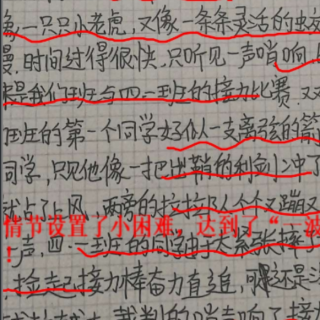 象一只只小老虎,又像一条条灵活的
漫,时间过得很快,只听见一声哨响
是我们班与四二班的接力比赛,又
班的第一个同学好似一支离弦的箭
同学,只见他像一把出鞘的利剑冲了
上风,两旁的拉拉队个个又蹦又
情节设置了小困难,达到了“一波
!声,四二班的同学由于太紧张摔
,捡起接力棒奋力直追,可还是
裁判的哨声响了,接